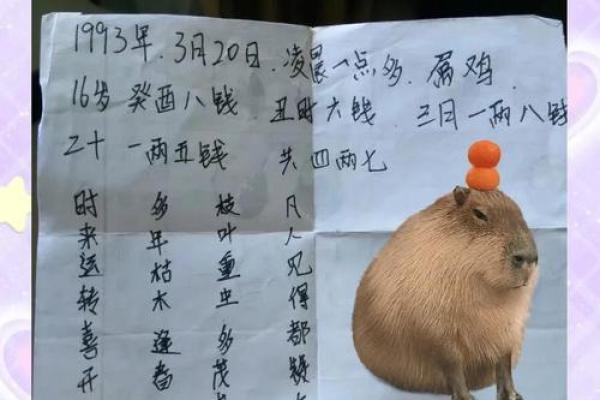 1993年.3月20日.凌晨一点多.属鸡.
16岁 癸酉八钱 丑时六钱 三月一两八钱
二十 一两五钱 共四两七
时来运转喜开
多年枯木逢春
枝叶重生多茂
凡人见得都